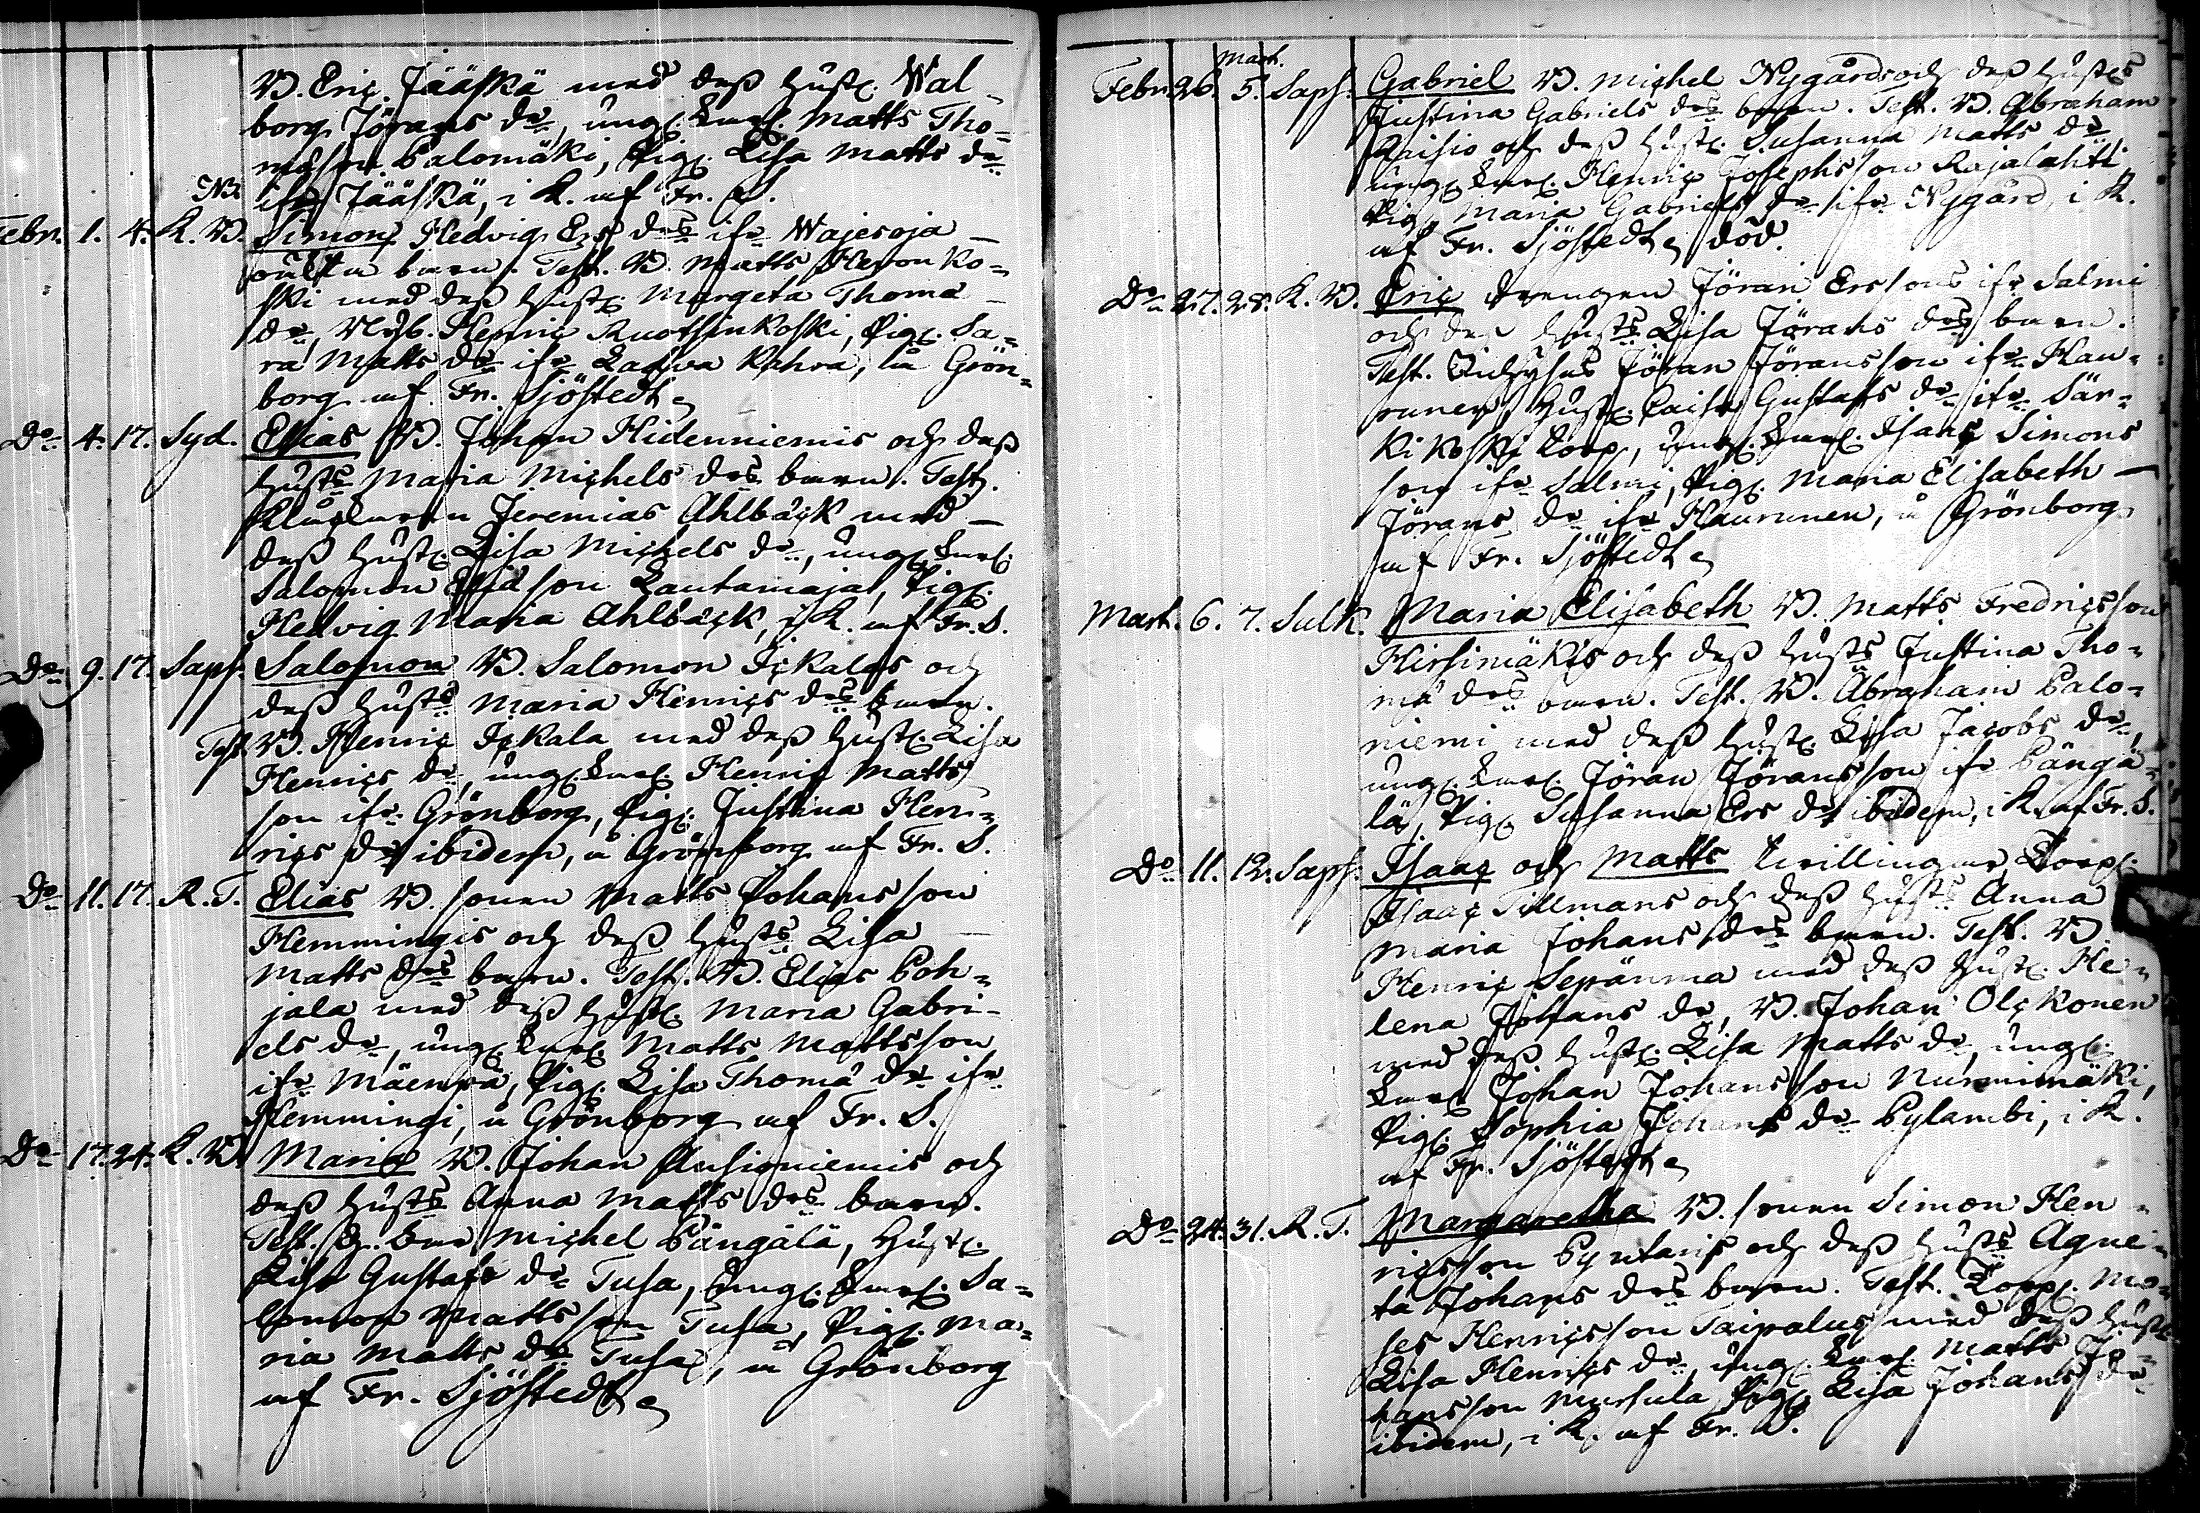 W. Eric Jääskä med deß hustr. Wal-
borg Jörans dr, ung. Karl. Matts Tho-
masson Palomäki, Pig. Lisa Matts dr
NB ifr Jääskä, i K. af Fr. S.
Febr. 1. 4. K. W. Simon Hedvig Ers drs ifr Wajesoja
oäkta barn. Test. W. Matts Hevonko-
ski med deß hustr. Margeta Thomä
dr, Nyb. Henric Ruotsinkoski, Pig. Sa-
ra Matts dr ifr Latva Rahra, å Grön-
borg af Fr. Sjöstedt
Do 4. 17. Syd. Elias W. Johan Hidenniemis och deß
hustrs Maria Michels drs barn. Test.
Klockaren Jeremias Ahlbäck med
deß hustr. Lisa Michels dr, ung. Karl.
Salomon Eliäson Lautamaja, Pig.
Hedvig Maria Ahlbäck, i K. af Fr. S.
Do 9. 17. Saps. Salomon W. Salomon Ickalas och
deß hustrs Maria Henrics drs barn.
Test W. Henric Ickala med deß hustr. Lisa
Henrics dr, ung. Karl. Henric Matts
son ifr Grönborg, Pig. Justina Hen-
rics dr ibidem, å Grönborg af Fr. S.
Do 11. 17. R. T. Elias W. sonen Matts Johansson
Hemmingis och deß hustrs Lisa
Matts drs barn. Test. W. Elias Poh-
jala med deß hustr. Maria Gabri-
els dr, ung. Karl. Matts Mattsson
ifr Mäenpä, Pig. Lisa Thomä dr ifr
Hemmingi, å Grönborg af Fr. S.
Do 17. 24. K. W. Maria W. Johan Ausioniemis och
deß hustrs Anna Matts drs barn.
Test. Michel Pängälä, Hustr.
Lisa Gustafs dr Tusa, Ung. Karl. Sa-
lomon Mattsson Tusa, Pig. Ma-
ria Matts dr Tusa, å Grönborg
af Fr. Sjöstedt
Mart.
Febr. 26. 5. Saps. Gabriel W. Michel Nygårds och deß hustrs
Justina Gabriels drs barn. Test. W. Abraham
Raisio och deß hustr. Susanna Matts dr
ung. Karl. Henric Josephsson Rajalahti
Pig. Maria Gabriels dr ifr Nygård, i K.
af Fr. Sjöstedt död.
Do 27. 28. K. W. Eric drengen Jöran Erssons ifr Salmi
och deß hustrs Lisa Jörans drs barn.
Test. Jöran Jöransson ifr Hau-
runen, hustr. Caisa Gustafs dr ifr Sär-
kikoski torp, ung. Karl. Isaac Simons
son ifr Salmi, Pig. Maria Elisabeth
Jörans dr ifr Haurunen, å Grönborg
af Fr. Sjöstedt
Mart. 6. 7. Sulk. Maria Elisabeth W. Matts Fredricsson
Hirsimäkis och deß hustrs Justina Tho-
mä drs barn. Test. W. Abraham Palo-
niemi med deß hustr. Lisa Jacobs dr,
ung. Karl. Jöran Jöransson ifr Pängä-
lä, Pig. Susanna Ers dr ibidem, i K. af Fr. S.
Do 11. 12. Saps. Isaac och Matts tvillingar, Torp.
Isaac Tillmans och deß hustrs Anna
Maria Johans drs barn. Test. W.
Henric Sepänma med deß hustr. He-
lena Johans dr, W. Johan Olckonen
med deß hustr. Lisa Matts dr, ung.
Karl Johan Johansson Nurmimäki,
Pig. Sophia Johans dr Pylambi, i K.
af Fr. Sjöstedt
Do 24. 31. R. T. Margaretha W. sonen Simon Hen-
ricsson Pyntaris och deß hustrs Agne-
ta Johans drs barn. Test. Torp. Mo-
ses Henricsson Taipalus med deß hustr.
Lisa Henrics dr, ung. Karl. Matts Jo-
hansson Mursula Pig. Lisa Johans dr
ibidem, i K. af Fr. S.